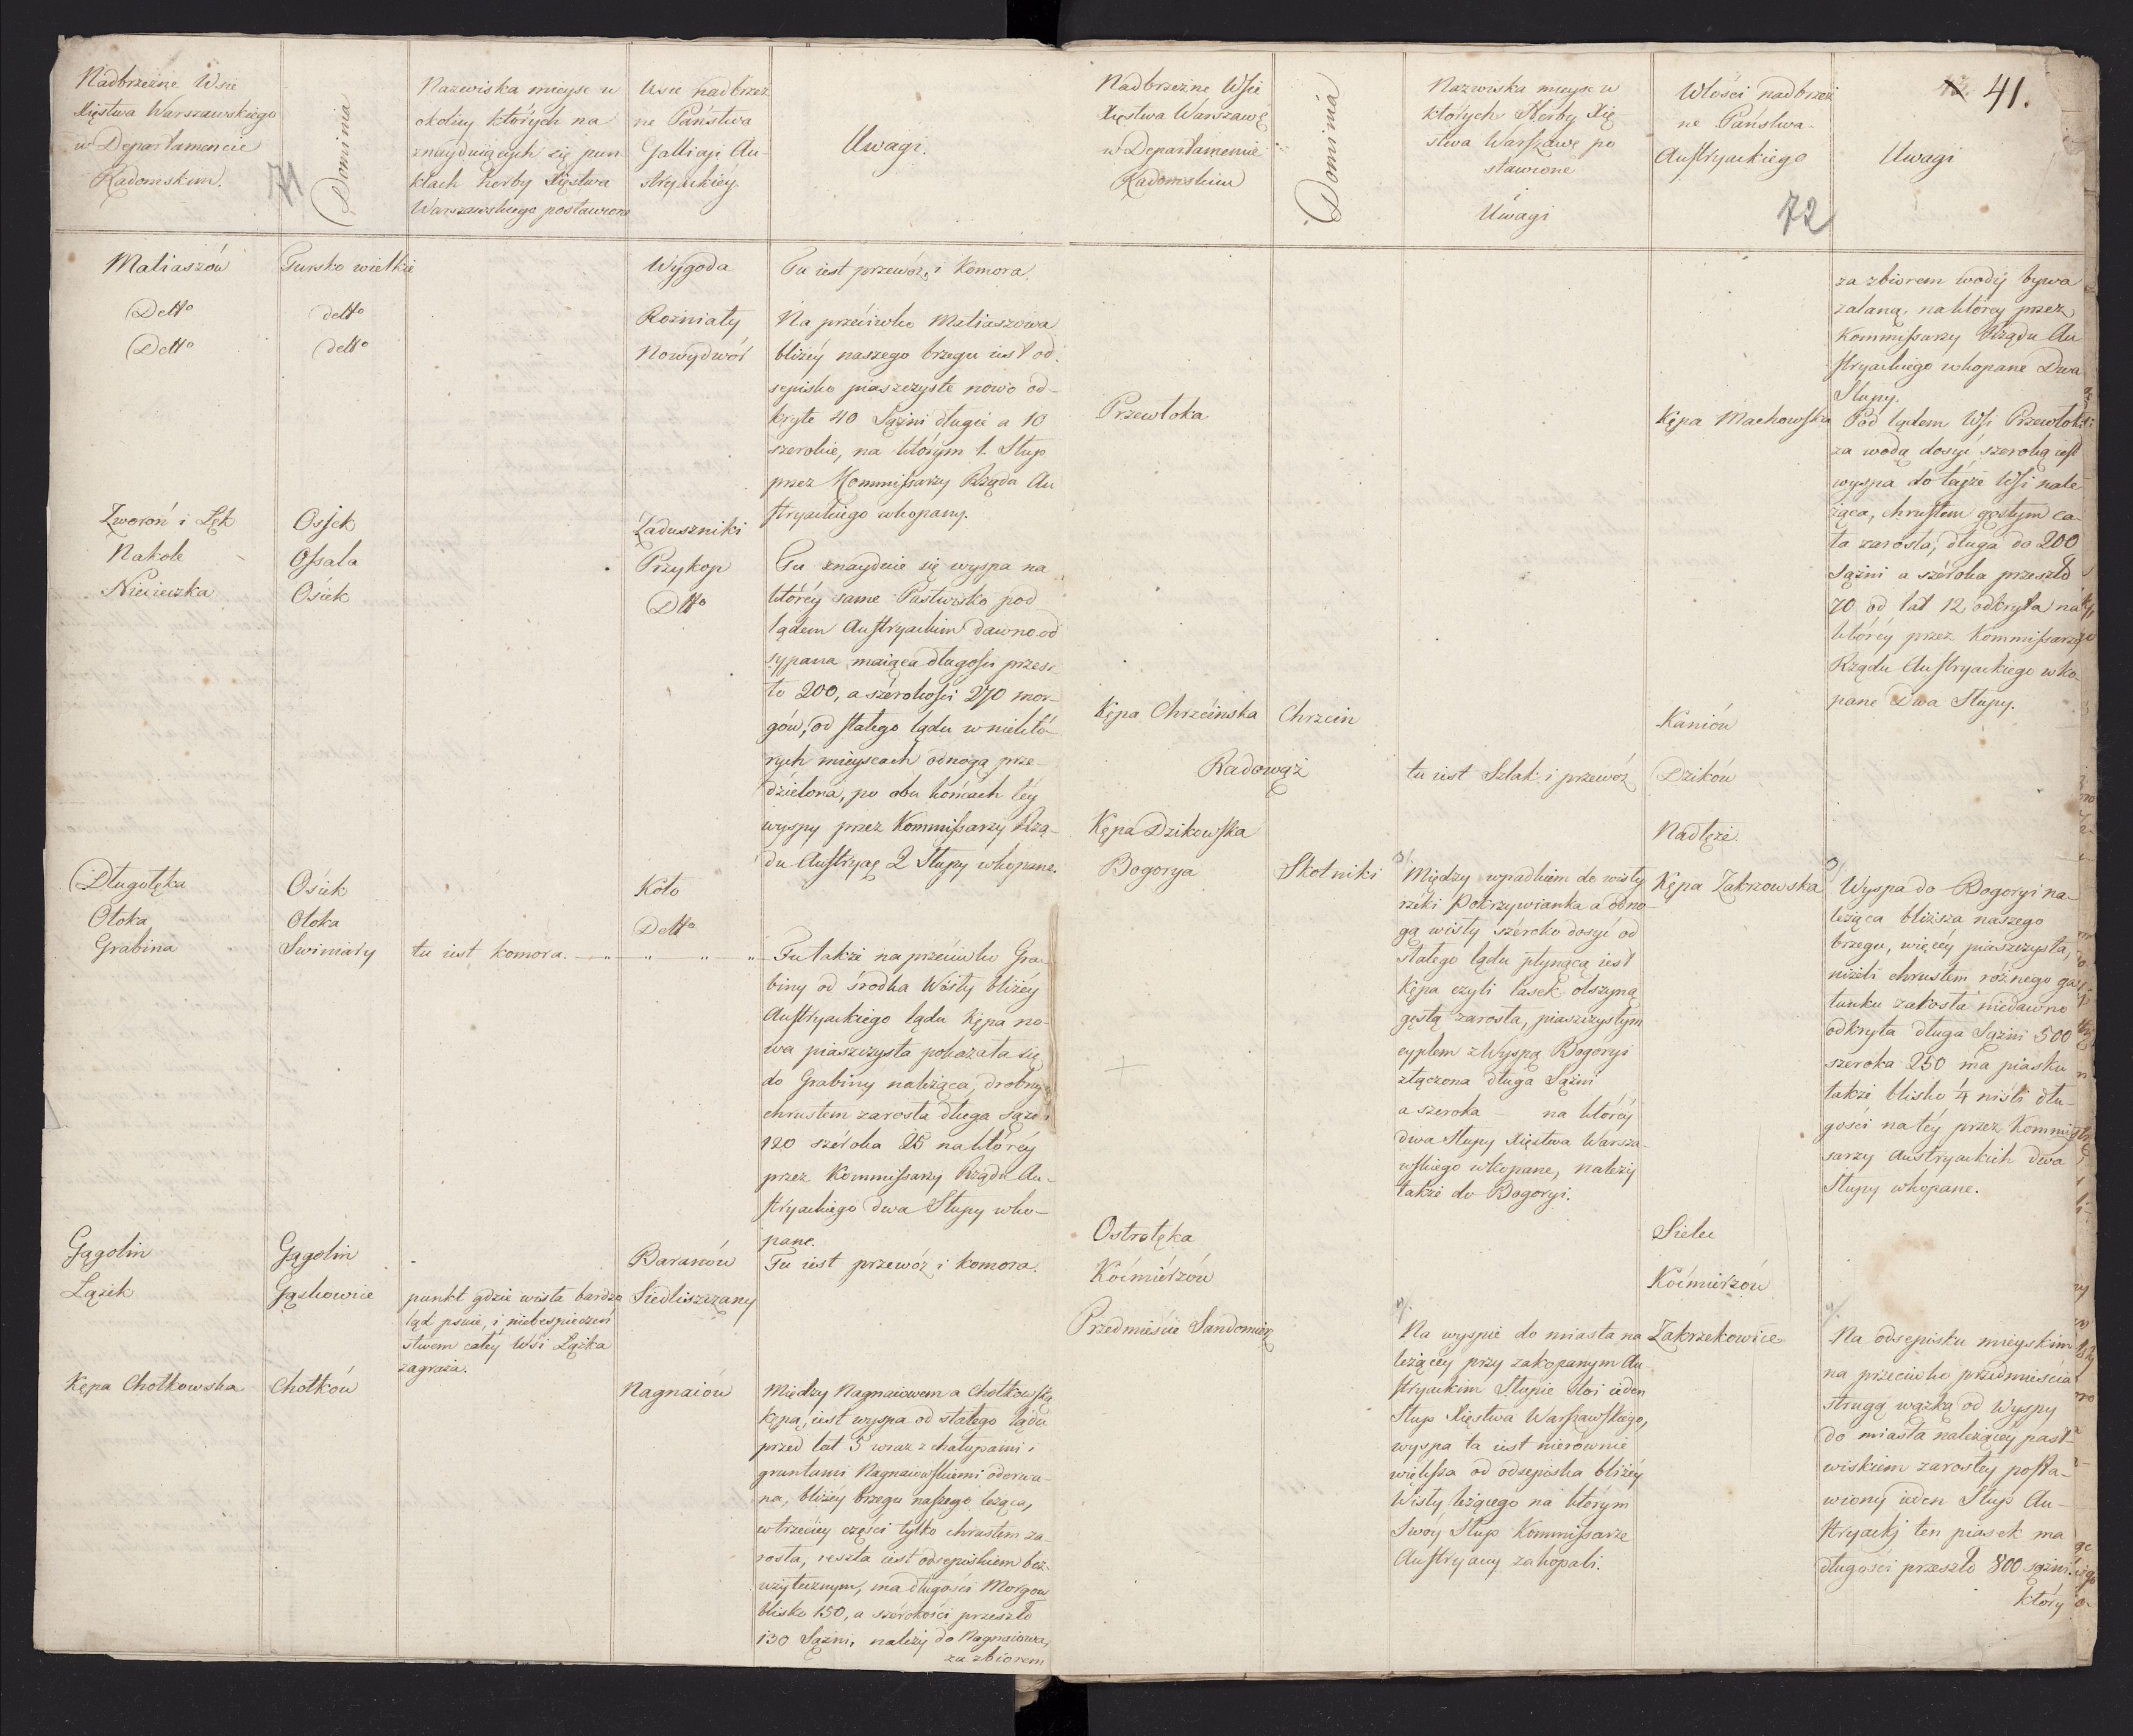 Nadbrzeżne Wsie
Xięstwa Warszawskiego
w Departamencie
Radomskim.
71
Dominia
Nazwiska mieysc w
okolicy których na
znayduiących się pun
ktach herby Xięstwa
Warszawskiego postawione
Wsie nadbrzeż
ne Państwa
Gallicyi Au-
stryackiey.
Uwagi.
Matiaszów
Tursko wielkie
Wygoda
Tu iest przewóz, i Komora.
Detto
detto
Rozniaty
Detto
detto
Nowydwór
Na przeciwko Matiaszowa
bliżéy naszego brzegu iest od
sepisko piaszczyste nowo od-
kryte 40 Sążni długie a 10
szerokie, na którym 1. Słup
przez Kommissarzy Rządu Au
stryackiego wkopany.
Zworoń i Łęk
Ossjek
Zaduszniki
Nakole
Ossala
Przykop
Niecieczka
Osiek
Dtto
Tu znayduie się wyspa na
któréy same Pastwisko pod
lądem Austryackim dawno od
sypana, maiąca długości przesz
ło 200, a szérokości 270 mor-
gów, od stałego lądu w niektó-
rych mieyscach odnogą prze-
dzielona, po obu końcach téy
wyspy przez Kommissarzy Rzą-
du Austryac 2 Słupy wkopane.
Długołęka
Osiek
Koło
Otoka
Otoka
Detto
Grabina
Swiniary
tu iest komora.
Tu także na przeciwko Gra-
biny od środka Wisły bliżey
Austryackiego lądu Kępa no-
wa piaszczysta pokazała się
do Grabiny należąca, drobny
chrustem zarosła długa sąże
120 széroka 25 na któréy
przez Kommissarzy Rządu Au-
stryackiego dwa Słupy wko-
pane.
Gągolin
Gągolin
Baranów
Tu iest przewóz i komora.
Łązik
Gąskowice
punkt gdzie wisła bardzo
ląd psuie, i niebespieczeń
stwem całéy Wsi Łązka
zagraża.
Siedliszczany
Kępa Chotkowska
Chotków
Nagnaiów
Między Nagnaiowem a Chotkowską
kępą, iest wyspa od stałego lądu
przed lat 5 wraz z chałupami i
gruntami Nagnaiowskiemi oderwa-
na, bliżéy brzegu naszego leżąca,
w trzeciéy części tylko chrustem za-
rosła, reszta iest odsepiskiem bez-
użytecznym, ma długości Morgow
blisko 150, a szérokości przeszło
130 Sążni, należy do Nagnaiowa,
za zbiorem
Nadbrzeżne Wsie
Xięstwa Warszawę
w Departamencie
Radomskim
Dominia
Nazwiska mieysc w
których Herby Xię
stwa Warszawę po
stawione
Uwagi
Włości nadbrzeż
ne Państwa
Austryackiego
72
41.
Uwagi
za zbiorem wody bywa
zalaną, na którey przez
Kommissarzy Rządu Au
stryackiego wkopane Dwa
Słupy.
Przewłoka
Kępa Machowska
Pod lądem Wsi Przewłoki
za wodą dosyć szeroką iest
wyspa do tajże Wsi nale-
żąca, chrustem gęstym ca-
ła zarosła, długa do 200
Sążni a széroka przeszło
70 od lat 12 odkryta na
któréy przez Kommissarzy
Rządu Austryackiego wko-
pane Dwa Słupy.
Kępa Chrzcinska
Chrzcin
Kaniów
Radowąż
tu iest Szlak i przewóz
Dzików
Kępa Dzikowska
Nadłęże.
Bogorya
Skotniki
Między wpadkiem do wisły
rzeki Pokrzywianka a odno-
gą wisły széroko dosyć od
stałego lądu płynącą iest
Kępa czyli lasek olszyną
gęstą zarosła, piaszczystym
cyplem z Wyspą Bogoryi
złączona długa Sążni
a szeroka – na któréy
dwa Słupy Xięstwa Warsza
wskiego wkopane, należy
także do Bogoryi.
Kępa Zakrzowska
Wyspa do Bogoryi na-
leżąca bliższa naszego
brzegu, więcéy piaszczysta,
niżeli chrustem różnego ga
tunku zarosła niedawno
odkryta długa Sążni 500
szeroka 250 ma piasku
także blisko ¼ miśli dłu-
gości na téy przez Kommis
sarzy Austryackich dwa
Słupy wkopane.
Ostrołęka
Sielec
Koćmiérzów
Koćmierzów
Przedmieście Sandomierz
Na wyspie do miasta na
leżącey przy zakopanym Au
stryackim Słupie stoi ieden
Słup Xięstwa Warszawskiego,
wyspa ta iest nierównie
większa od odsepiska bliżéy
Wisły leżącego na którym
Swóy Słup Kommissarze
Austryaccy zakopali.
Zakrzekowice
Na odsepisku mieyskim
na przeciwko przedmieścia
strugą wązką od Wyspy
do miasta należącey past-
wiskiem zarosłey posta-
wiony ieden Słup Au-
stryackj ten piasek ma
długości przeszło 800 sążni.
który